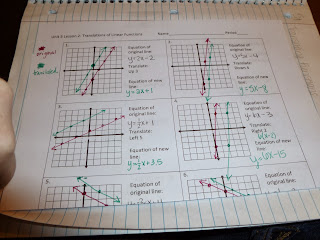 Unit 6 Lesson 2: Translations of Linear Functions Name Period
original
translated
1.
Equation of
original line:
y=2x-2
Translate:
Up 3
Equation of new
line:
y=2x+1
2.
Equation of
original line:
Translate:
Down 4
Equation of new
line:
3.
Equation of
original line:
y=½x+1
Translate:
Left 5
Equation of new
line:
y=½x+3.5
4.
Equation of
original line:
y=6x-3
Translate:
Right 2
Equation of new
line:
y=6x-15
5.
Equation of
original line:
6.
Equation of
original line: